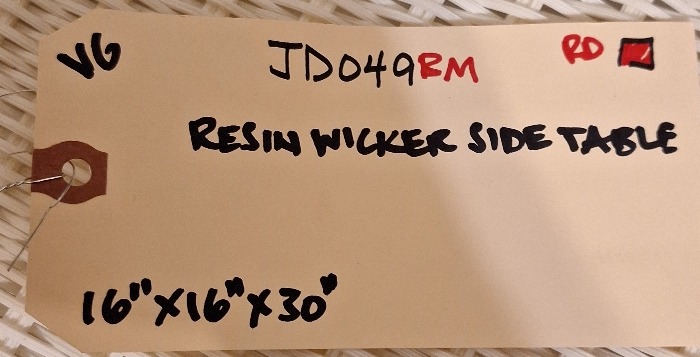 VG JD049RM RD
RESIN WICKER SIDE TABLE
16"X16"X30"